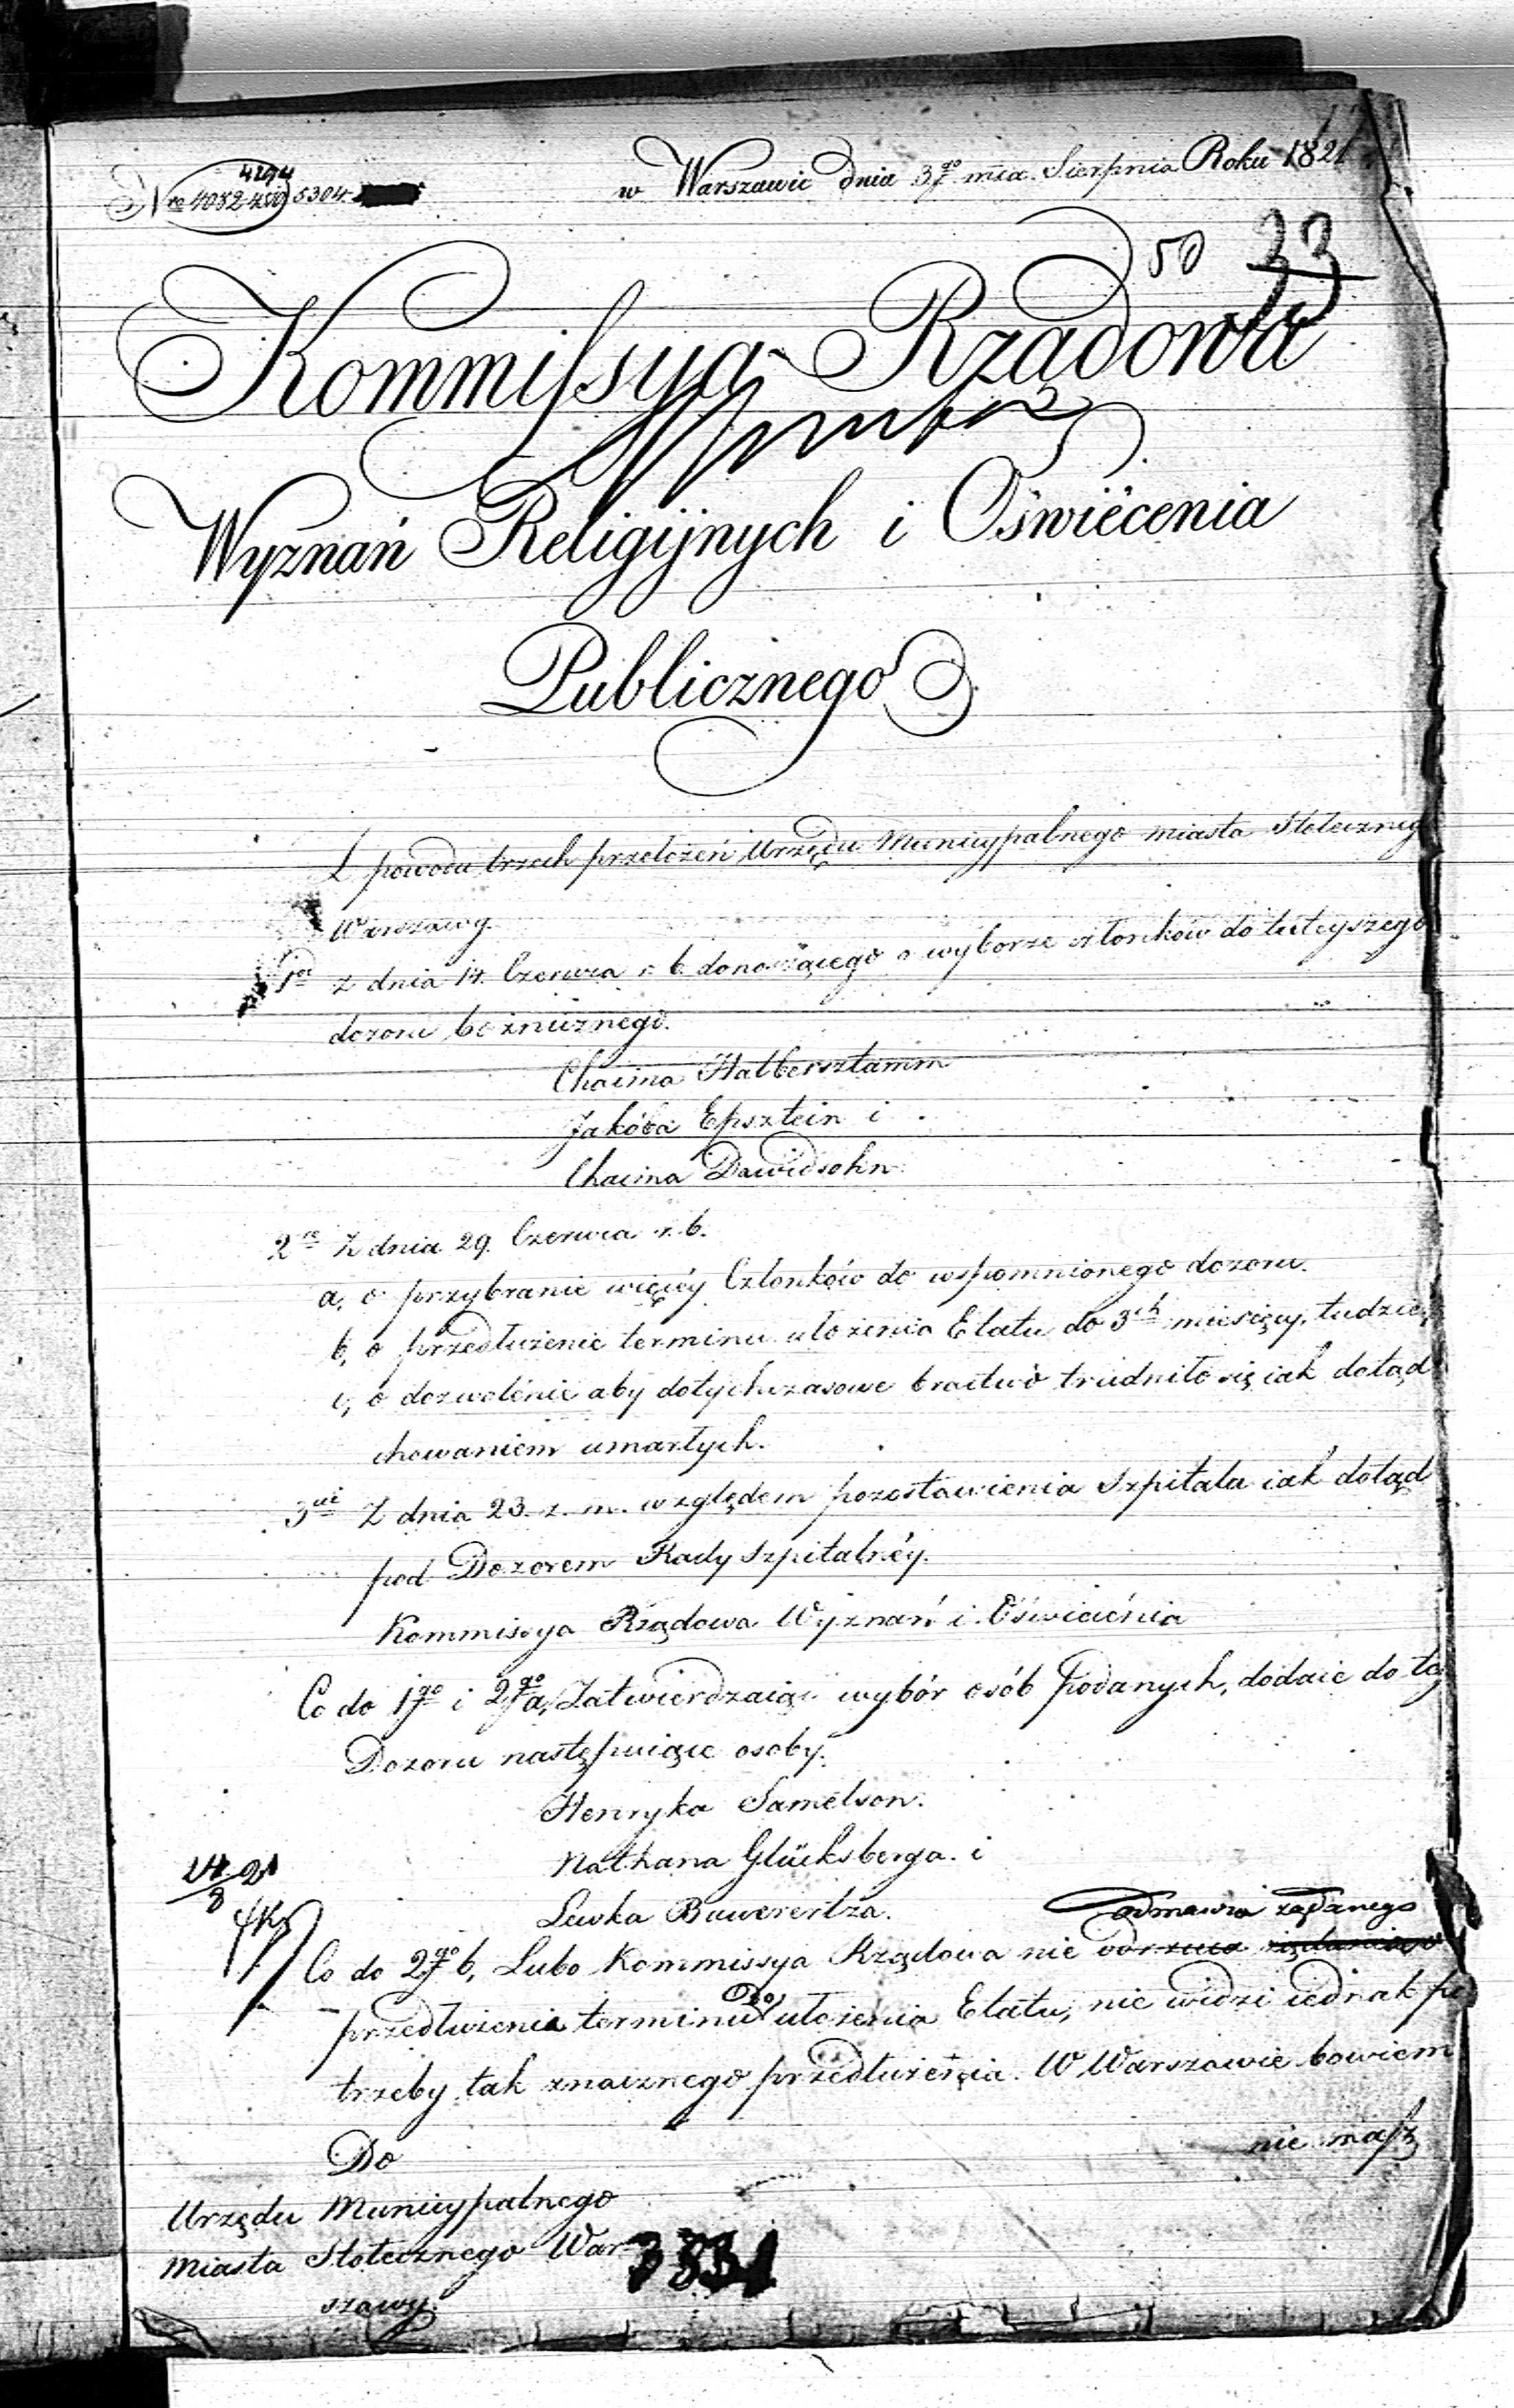 4294
Nro 4082 4810 5304
w Warszawie dnia 3go mca Sierpnia Roku 1821
50 33
Kommissya Rządowa
Wyznań Religijnych i Oświécenia
Publicznego
Z powodu trzech przełożeń Urzędu Municypalnego miasta Stołeczneg
Warszawy.
1o z dnia 14. Czerwca r. b. donoszącego o wyborze członków do tuteyszego
dozoru bożnicznego.
Chaima Halbersztamm
Jakóba Epsztein i
Chaima Dawidsohn
2re Z dnia 29. Czerwca r. b.
a, o przybranie więcéy Członków do wspomnionego dozoru.
b, o przedłużenie terminu ułożenia Etatu do 3ch miesięcy, tudzież
c, o dozwolénie aby dotychczasowe bractwo trudniło się iak dotąd
chowaniem umarłych.
3cie Z dnia 23. z. m. względem pozostawienia Szpitala iak dotąd
pod Dozorem Rady Szpitalnéy.
Kommissya Rządowa Wyznań i Oświécénia
Co do 1go i 2go a, Zatwierdzaiąc wybór osób podanych, dodaie do teg
Dozoru następuiące osoby.
Henryka Samelson.
Nathana Glücksberga. i
Lewka Bawerertza.
24/8 21
odmawia żądanego
Co do 2go b, Lubo Kommissya Rządowa nie odrzuca żądania o
przedłużenia terminu do ułożenia Etatu, nie widzi iednak po
trzeby tak znacznego przedłużenia. W Warszawie bowiem
nie masz
Do
Urzędu Municypalnego
Miasta Stołecznego War
szawy.
3831